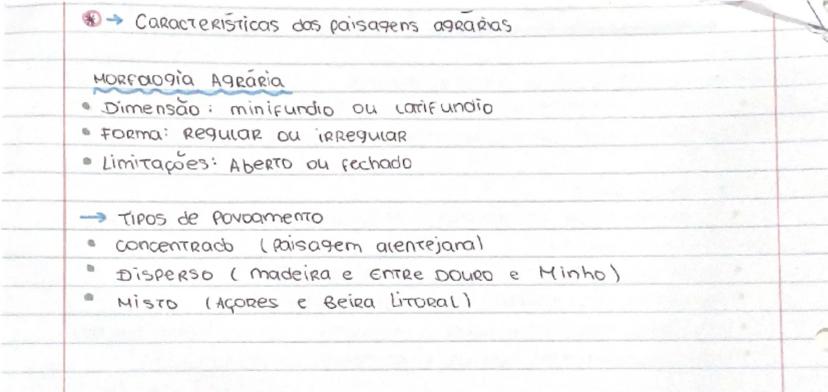 * → Características das paisagens agrárias
Morfologia Agrária
• Dimensão: minifundio ou latifundio
• Forma: Regular ou irregular
• Limitações: Aberto ou fechado
→ Tipos de Povoamento
• Concentrado (Paisagem alentejana)
• Disperso (madeira e Entre Douro e Minho)
• Misto (Açores e Beira Litoral)